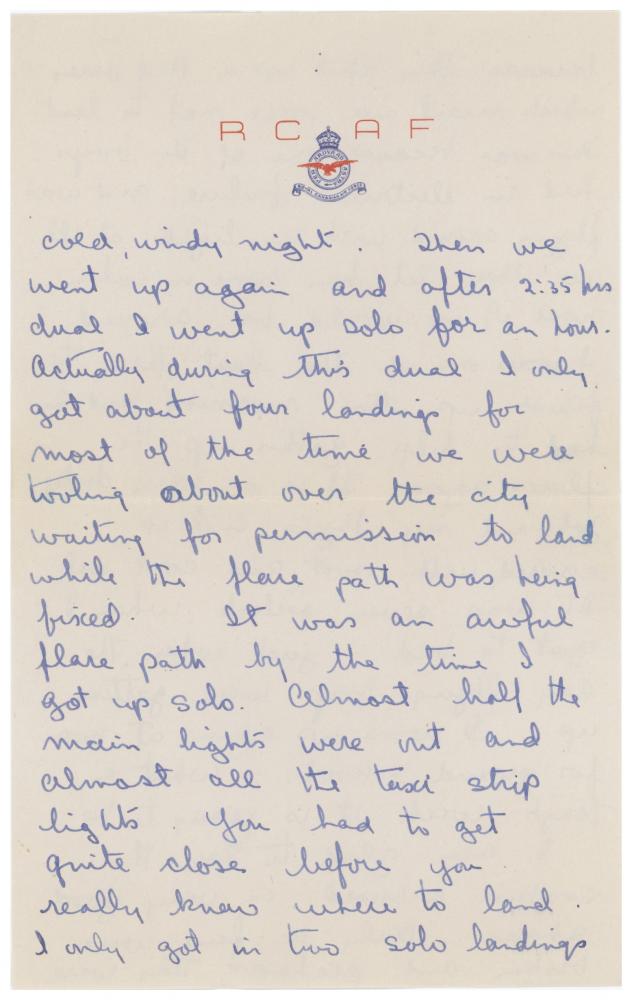 R C A F
cold, windy night. Then we
went up again and after 2:35 hrs
dual I went up solo for an hour.
Actually during this dual I only
got about four landings for
most of the time we were
tooling about over the city
waiting for permission to land
while the flare path was being
fixed. It was an awful
flare path by the time I
got up solo. Almost half the
main lights were out and
almost all the taxi strip
lights. You had to get
quite close before you
really knew where to land.
I only got in two solo landings